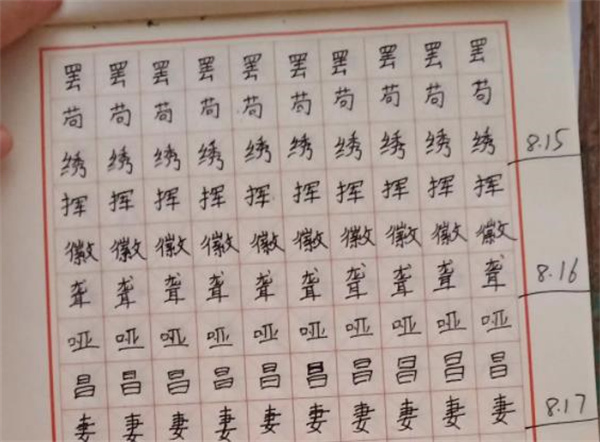 罢罢罢罢罢罢罢罢罢罢
苟苟苟苟苟苟苟苟苟苟
绣绣绣绣绣绣绣绣绣绣 8.15
挥挥挥挥挥挥挥挥挥挥
徽徽徽徽徽徽徽徽徽徽
聋聋聋聋聋聋聋聋聋聋 8.16
哑哑哑哑哑哑哑哑哑哑
昌昌昌昌昌昌昌昌昌昌
妻妻妻妻妻妻妻妻妻妻 8.17